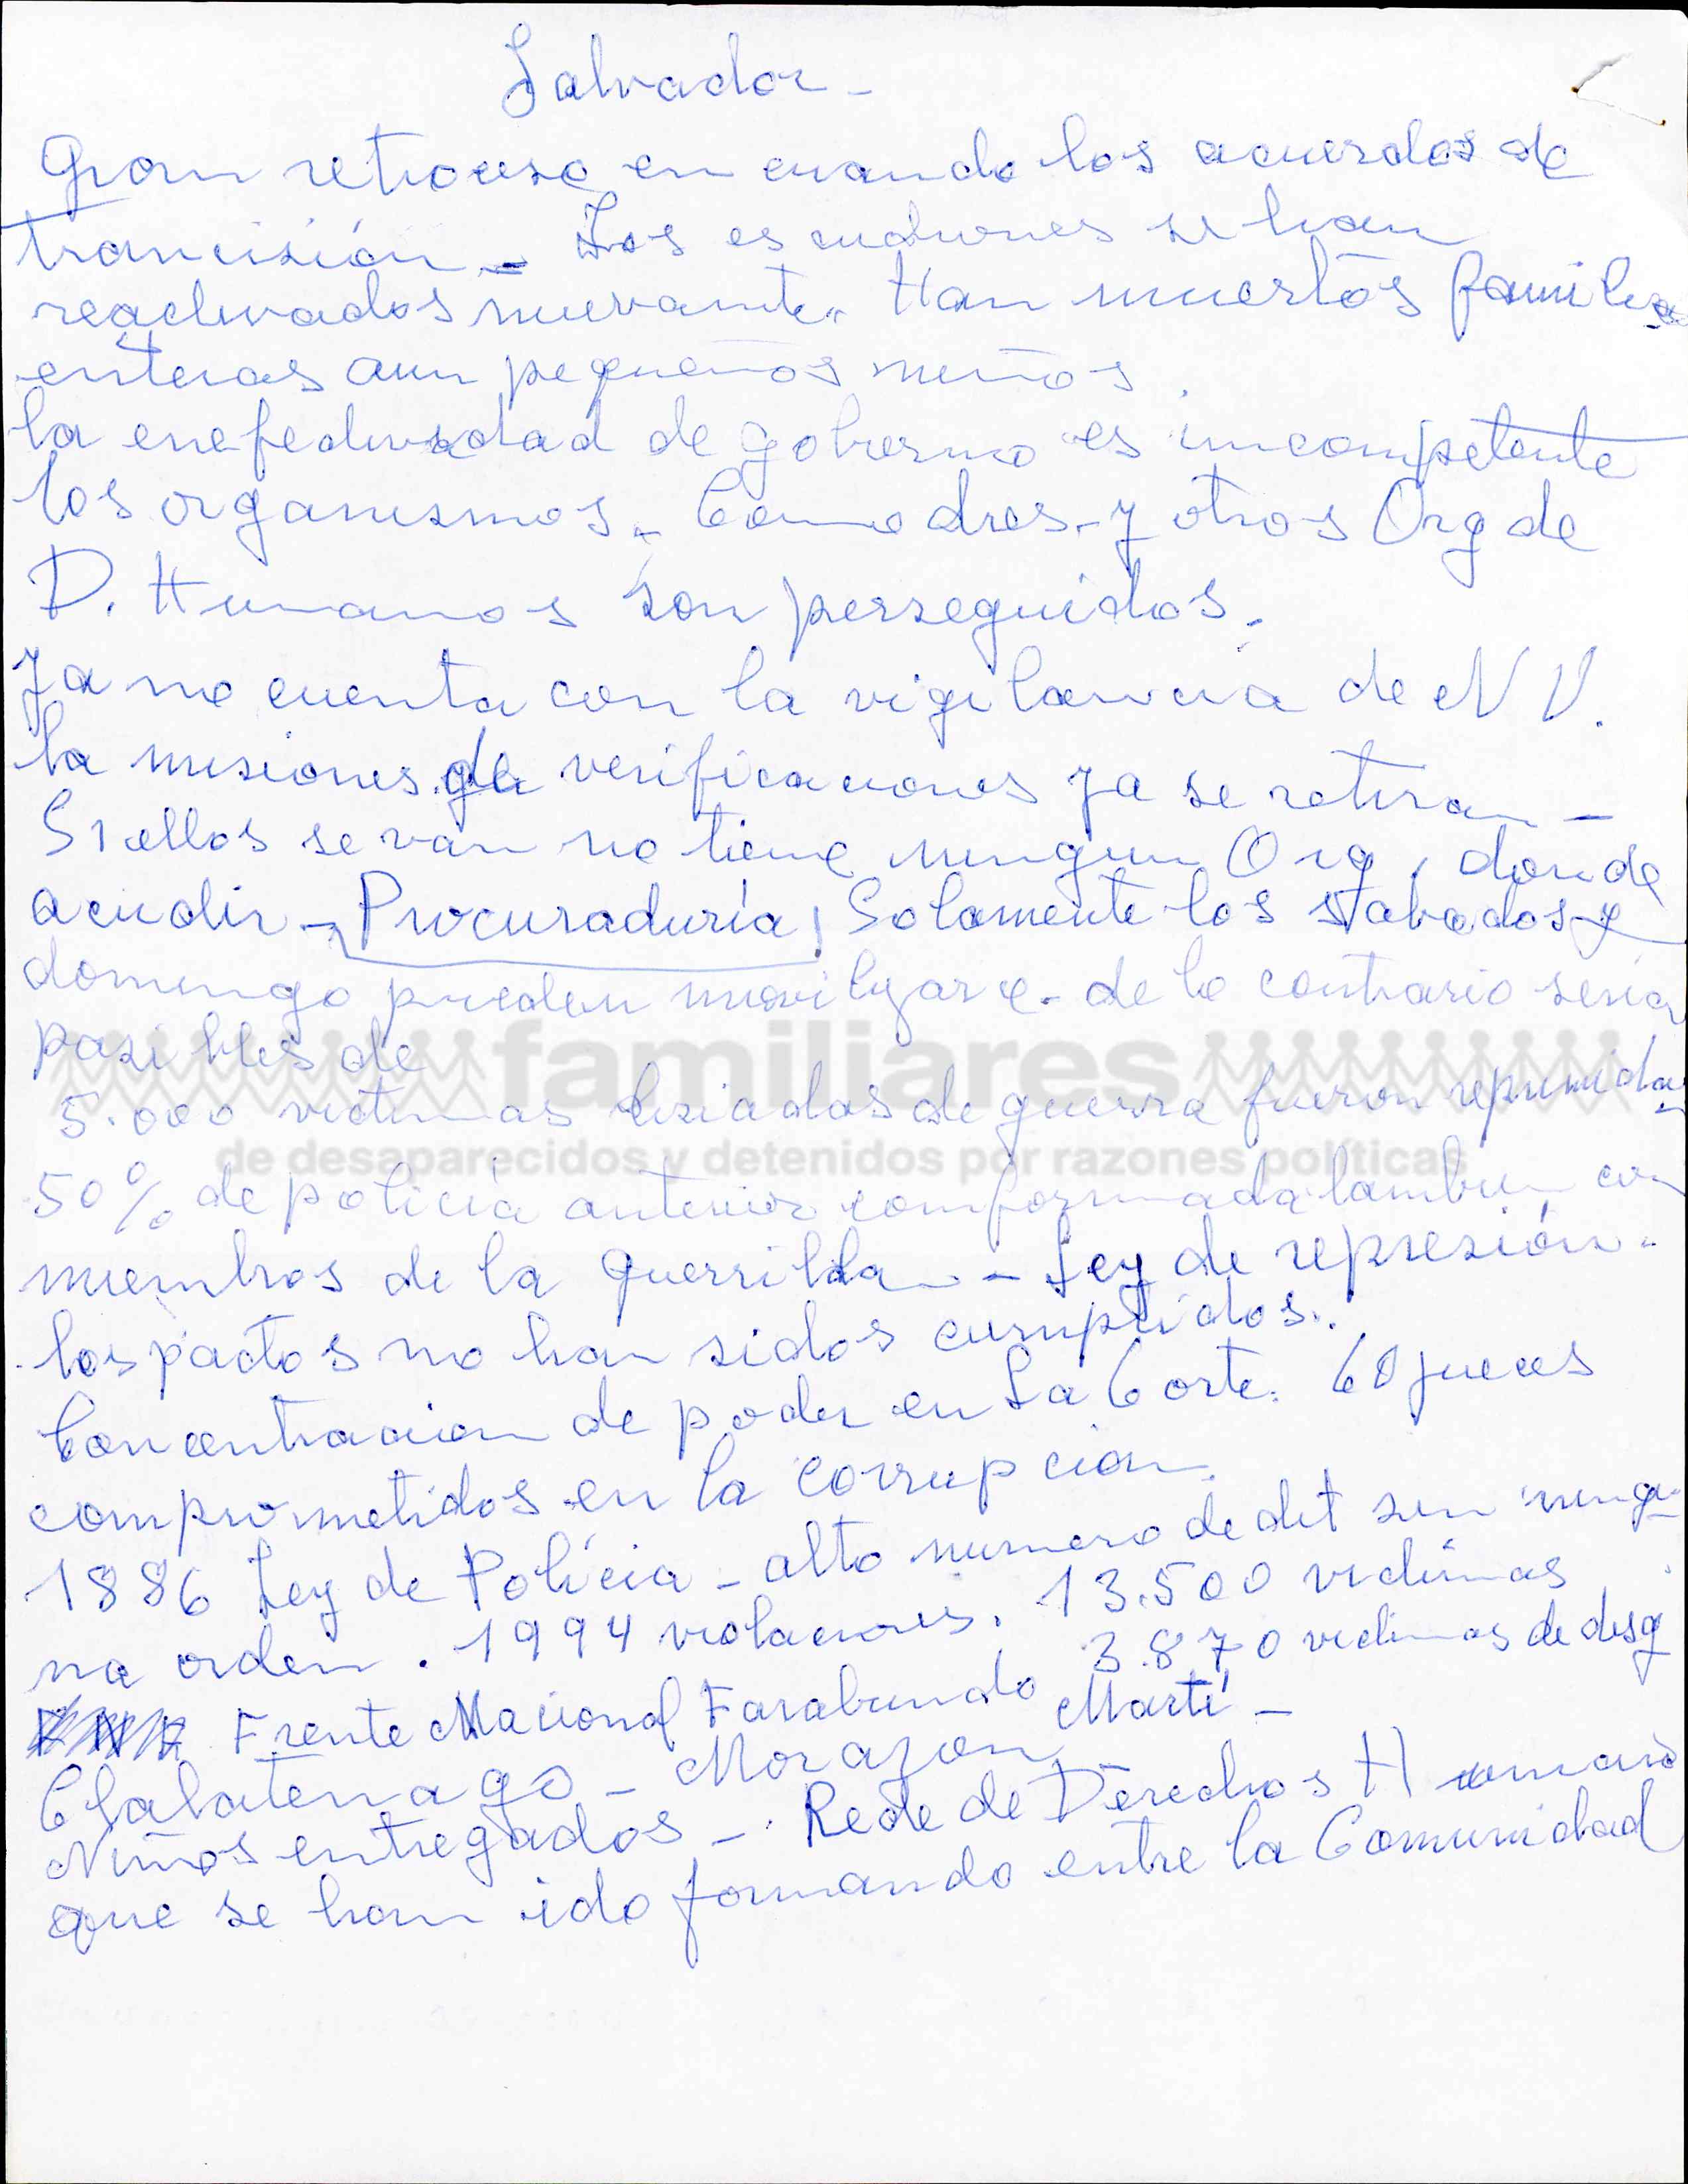 Salvador -
Gran retroceso en cuando los acuerdos de
trancisión - Los escudrones se han
reactivados nuevamte. Han muertos familias
enteras aun pequeños niños.
la enefectividad de gobierno es incompetente
los organismos. Comadres - y otros Org de
D. Humanos son perseguidos.
Ya no cuenta con la vigilancia de N U.
la misiones de verificaciones ya se retiran -
Si ellos se van no tiene ningun Org, donde
acudir - Procuraduría, Solamente los sabados y
domingo pueden movilizarse - de lo contrario seria
pasibles de
familiares
5.000 victimas lisiados de guerra fueron reprimidas
de desaparecidos y detenidos por razones políticas
50% de policía anterior conformada tambien con
miembros de la guerrilla - Ley de represión -
los pactos no han sidos cumplidos.
Concentracion de poder en La Corte. 60 jueces
comprometidos en la corrupcion.
1886 Ley de Policia - alto numero de det sin ningu-
na orden. 1994 violaciones. 13.500 victimas
3.870 victimas de desg
Frente Nacional Farabundo Martí -
Chalatenago - Morazon
Niños entregados - Rede de Derechos Humano
que se han ido formando entre la Comunidad